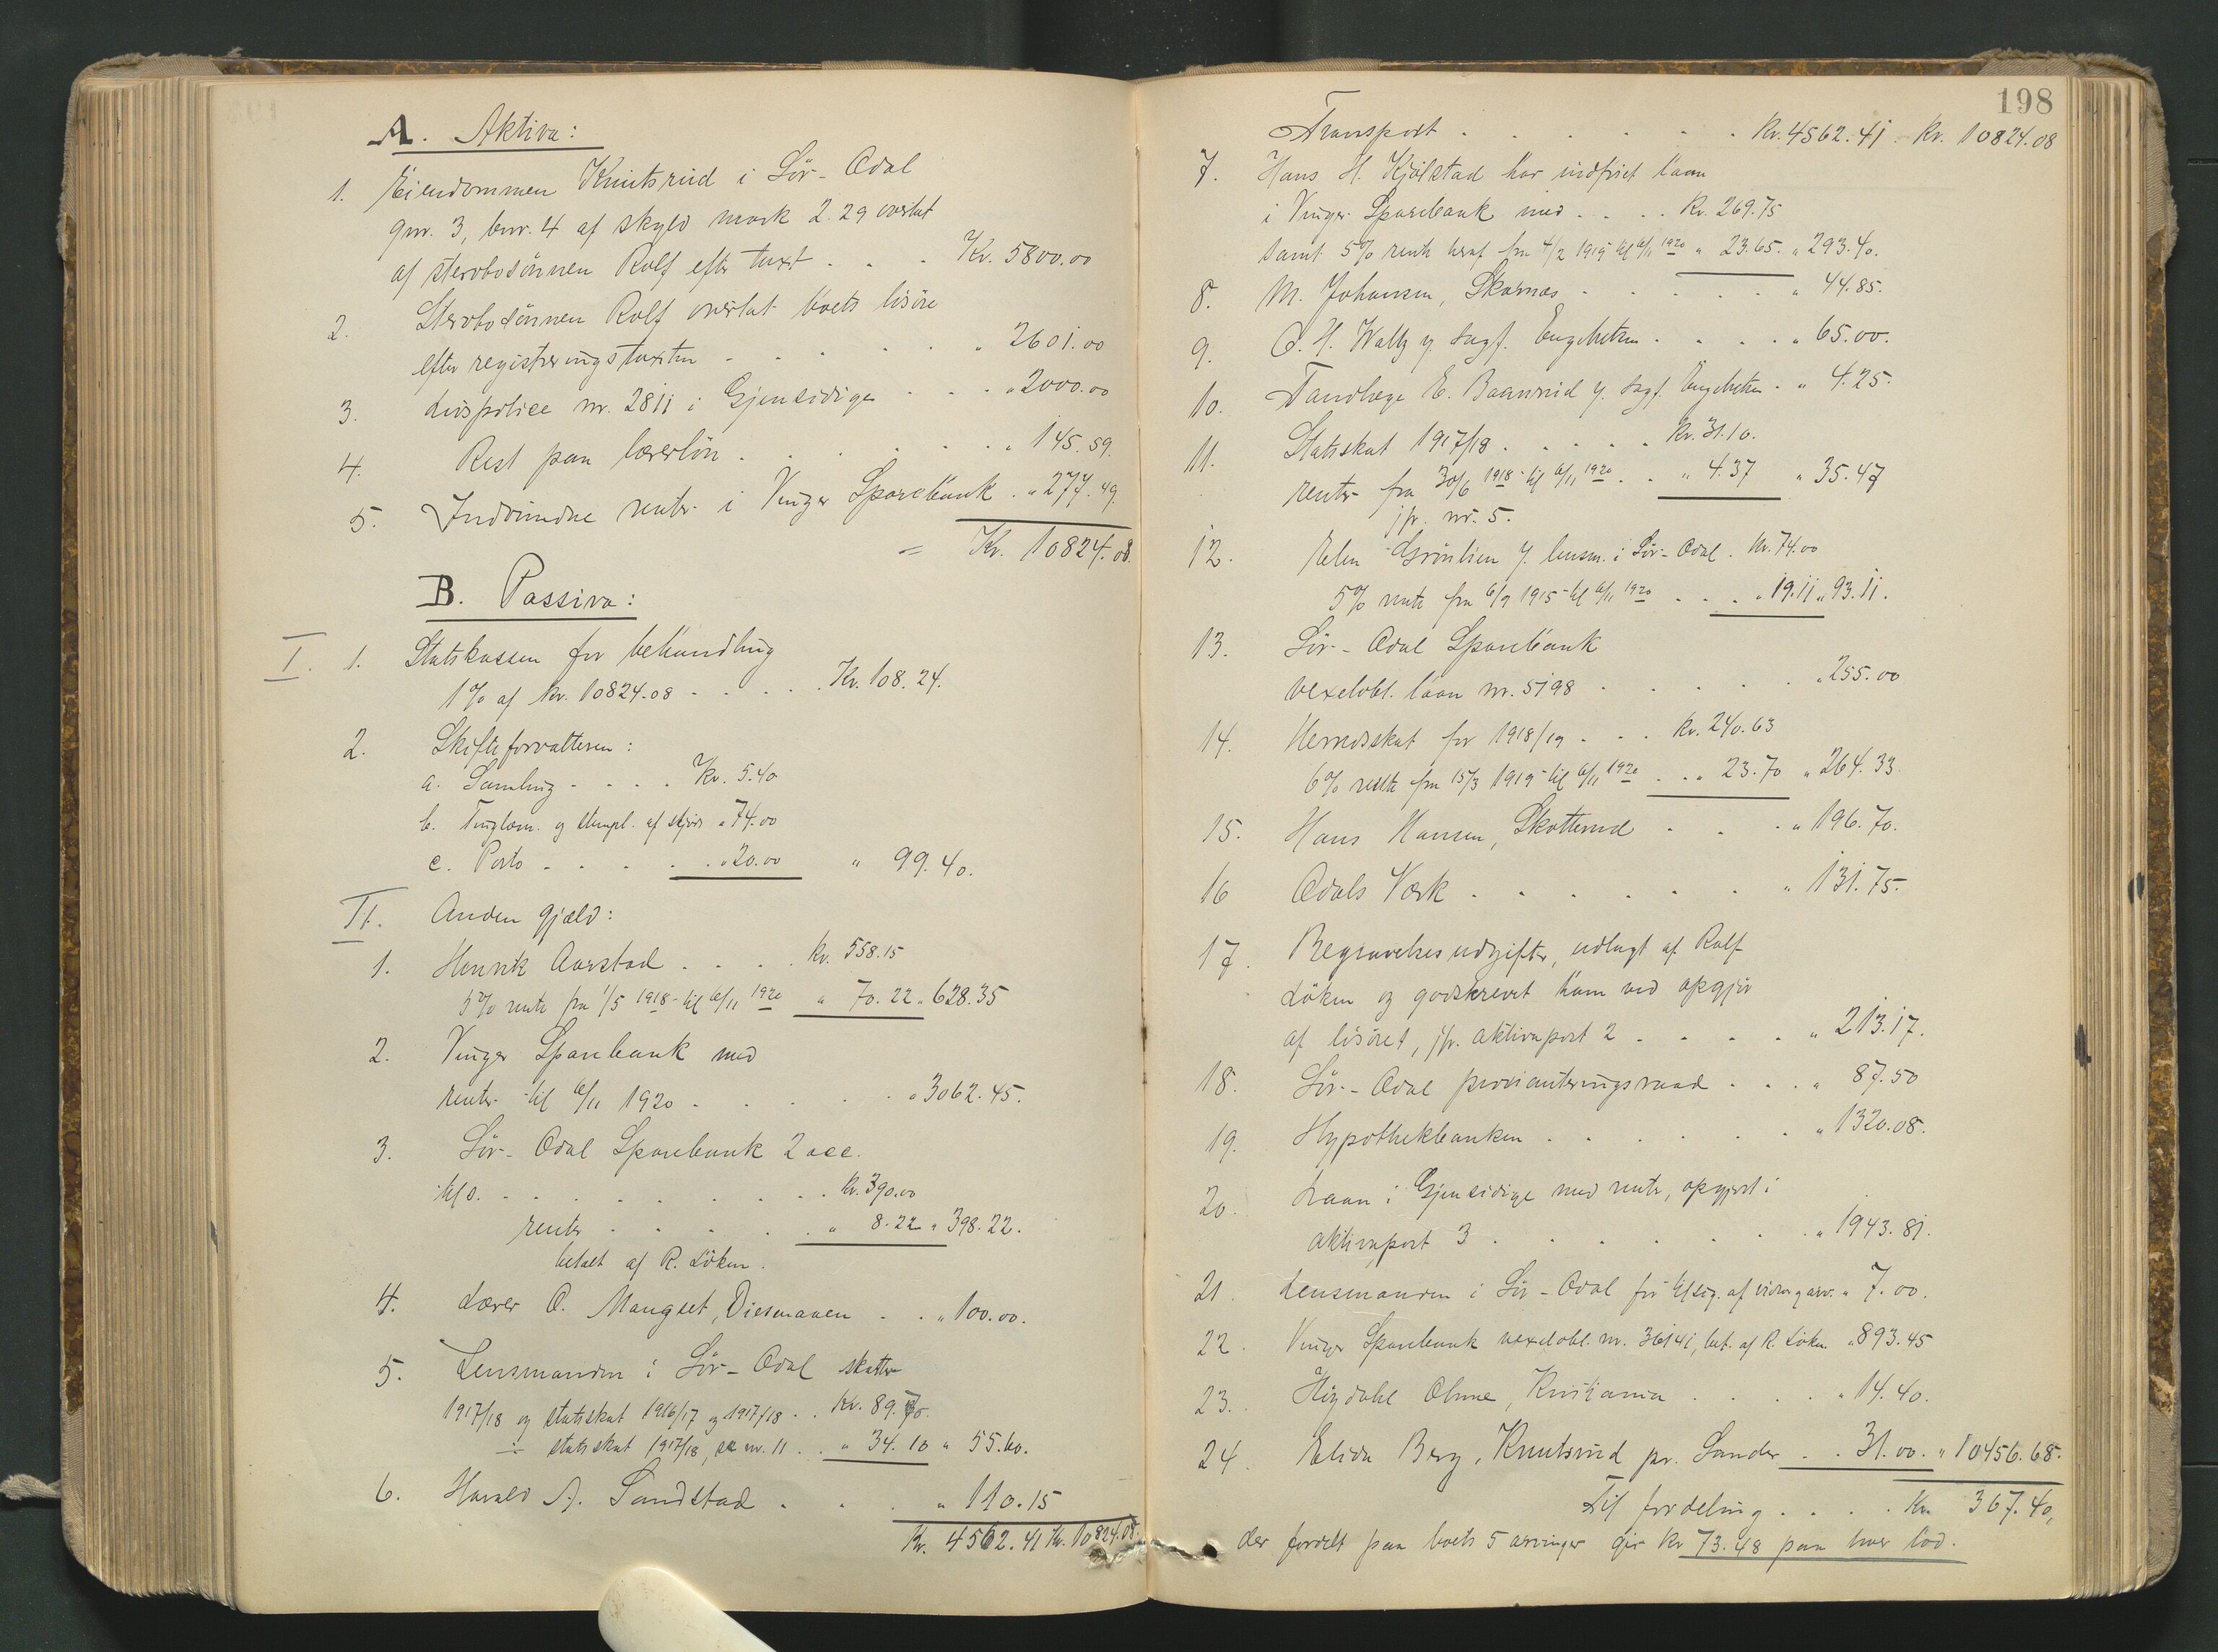 A. Aktiva:
1. Eiendommen Knutsrud i Sör-Odal
gnr. 3, bnr. 4 af skyld mark 2.29 overtat
af stervbosönnen Rolf efter taxt . . . Kr. 5800.00
2. Stervbosönnen Rolf overtat boets lösöre
efter registreringstaxten . . . . . " 2601.00
3. Livspolice nr. 2811 i Gjensidige . . . " 2000.00
4. Rest paa lærerlön . . . . . . " 145.59
5. Indvundne renter i Vinger Sparebank . " 277.49
= Kr. 10824.08
B. Passiva:
I. 1. Statskassen for behandling
1% af kr. 10824.08 . . . . . Kr. 108.24.
2. Skifteforvalteren:
a. Samling . . . . Kr. 5.40
b. Tinglæsn. og stempl. af skjöte " 74.00
c. Porto . . . . . " 20.00 " 99.40.
II. Anden gjæld:
1. Henrik Aarstad . . . . Kr. 558.15
5% rente fra 1/5 1918 til 6/11 1920 " 70.22 " 628.35
2. Vinger Sparebank med
renter til 6/11 1920 . . . . . " 3062.45.
3. Sör-Odal Sparebank 2 acc.
tils. . . . . . . . . Kr. 390.00
renter . . . . . " 8.22 " 398.22.
betalt af R. Löken.
4. Lærer O. Mangset, Disenaaen . . " 100.00.
5. Lensmanden i Sör-Odal skatter
1917/18 og statsskat 1916/17 og 1917/18 . . Kr. 89.70.
÷ statsskat 1917/18, se nr. 11 . . " 34.10 " 55.60.
6. Harald A. Sandstad . . . " 110.15
Kr. 4562.41 Kr. 10824.08.
198
Transport . . . . . . Kr. 4562.41 . Kr. 10824.08
7. Hans H. Kjölstad har indfriet laan
i Vinger Sparebank med . . . . Kr. 269.75
samt 5% rente heraf fra 4/2 1919 til 6/11 1920 " 23.65. " 293.40.
8. M. Johansen, Skarnes . . . . . " 44.85.
9. O. H. Waltz v. sagf. Engebretsen . . . . " 65.00.
10. Tandlæge E. Baanrud v. sagf. Engebretsen . " 4.25.
11. Statsskat 1917/18 . . . . . Kr. 31.10.
renter fra 30/6 1918 til 6/11 1920 . . " 4.37 " 35.47
jfr. nr. 5.
12. Elen Grönlien v. lensm. i Sör-Odal . Kr. 74.00
5% rente fra 6/9 1915 til 6/11 1920 . . . " 19.11 " 93.11.
13. Sör-Odal Sparebank
vexelobl. laan nr. 5198 . . . . . " 255.00
14. Herredsskat for 1918/19 . . . Kr. 240.63
6% rente fra 15/3 1919 til 6/11 1920 . . " 23.70 " 264.33
15. Hans Hansen, Skotterud . . . " 196.70.
16 Odals Værk . . . . . . " 131.75.
17. Begravelsesudgifter, udlagt af Rolf
Löken og godskrevet ham ved opgjör
af lösöret, jfr. aktivapost 2 . . . . " 213.17.
18. Sör-Odal provianteringsraad . . . " 87.50
19. Hypothekbanken . . . . . . " 1320.08.
20. Laan i Gjensidige med renter, opgjort i
aktivapost 3 . . . . . . . " 1943.81.
21. Lensmanden i Sör-Odal for tilsig. af " 7.00.
22. Vinger Sparebank vexelobl. nr. 36141, bet. af R. Löken " 893.45
23. Ohme, Kristiania . . . . " 14.40.
24. Elida Berg, Knutsrud pr. Sander . . 31.00. " 10456.68.
Til fordeling . . . . Kr. 367.40,
der fordelt paa boets 5 arvinger gir kr 73.48 paa hver lod.